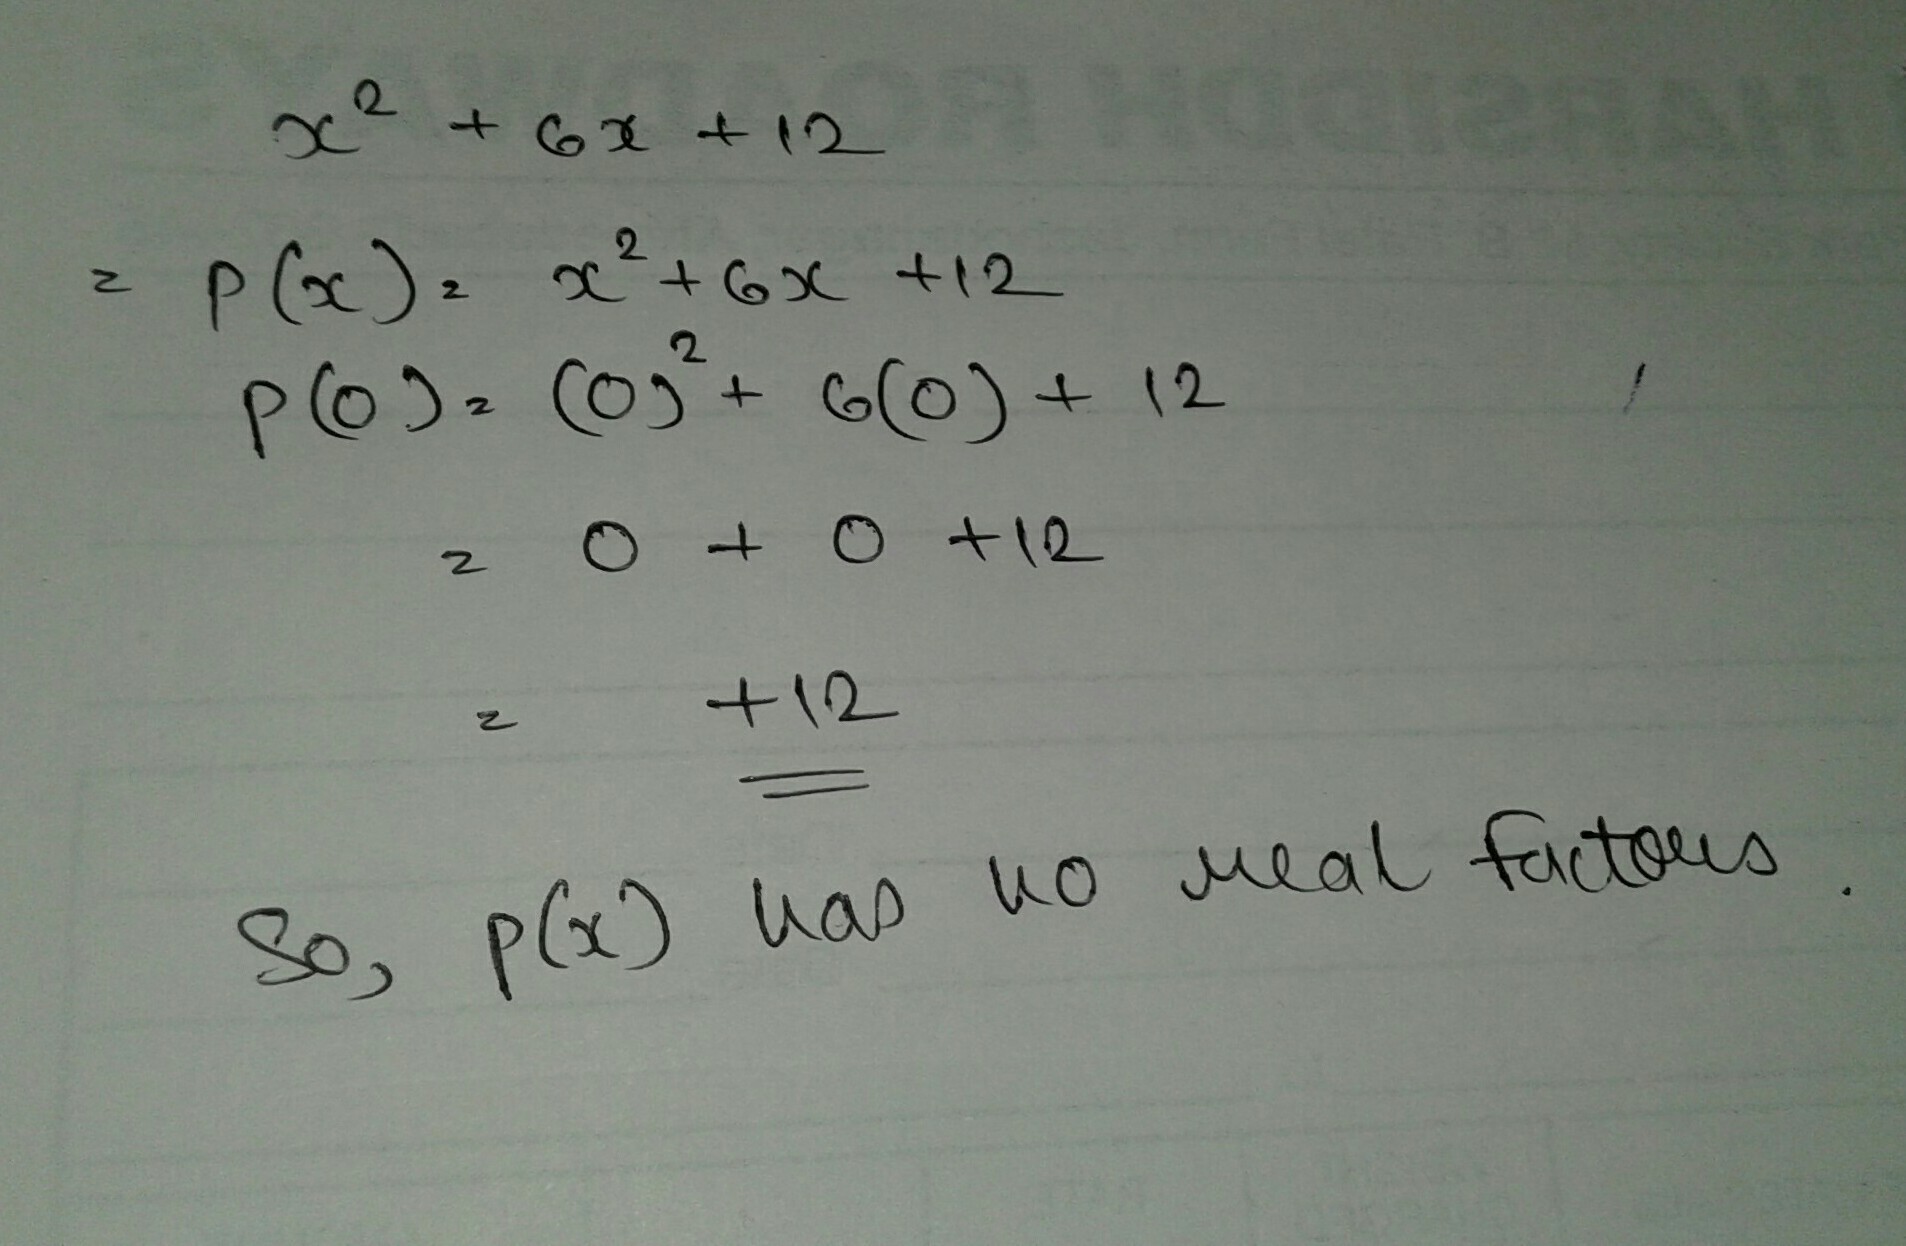 x² + 6x + 12
= p(x) = x² + 6x + 12
p(0) = (0)² + 6(0) + 12
= 0 + 0 + 12
= +12
So, p(x) has no real factors.